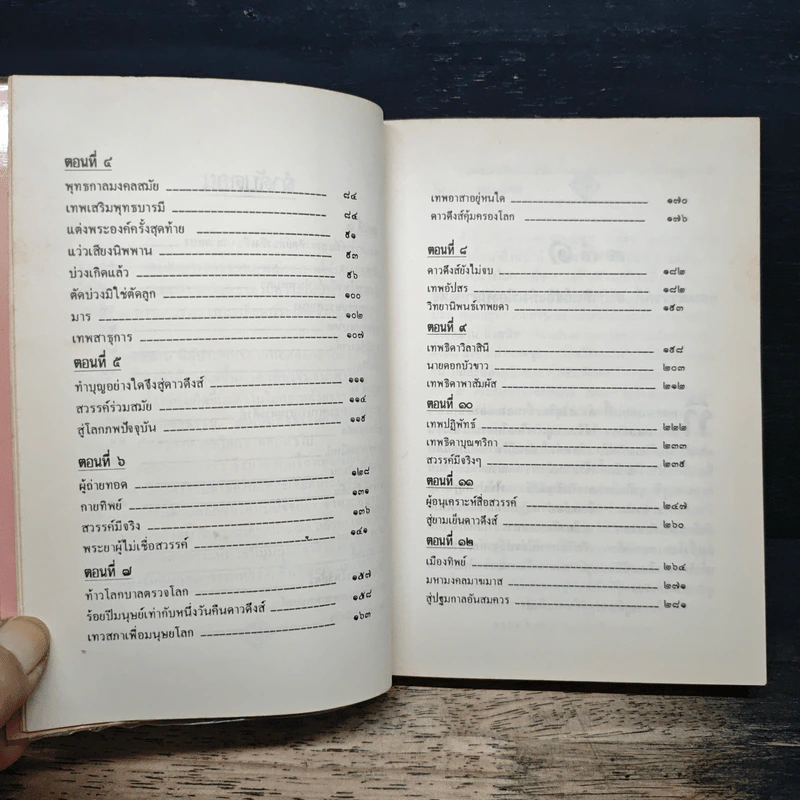 ตอนที่ ๔
พุทธกาลมงคลสมัย ๘๔
เทพเสริมพุทธบารมี ๘๔
แต่งพระองค์ครั้งสุดท้าย ๙๑
แว่วเสียงนิพพาน ๙๓
บ่วงเกิดแล้ว ๙๖
ตัดบ่วงมิใช่ตัดลูก ๑๐๐
มาร ๑๐๒
เทพสาธุการ ๑๐๗
ตอนที่ ๕
ทำบุญอย่างใดจึงสู่ดาวดึงส์ ๑๑๑
สวรรค์ร่วมสมัย ๑๑๔
สู่โลกภพปัจจุบัน ๑๑๙
ตอนที่ ๖
ผู้ถ่ายทอด ๑๒๘
กายทิพย์ ๑๓๑
สวรรค์มีจริง ๑๓๖
พระยาผู้ไม่เชื่อสวรรค์ ๑๔๑
ตอนที่ ๗
ท้าวโลกบาลตรวจโลก ๑๕๗
ร้อยปีมนุษย์เท่ากับหนึ่งวันคืนดาวดึงส์ ๑๕๘
เทวสภาเพื่อมนุษยโลก ๑๖๓
เทพอาสาอยู่หนใด ๑๗๐
ดาวดึงส์คุ้มครองโลก ๑๗๖
ตอนที่ ๘
ดาวดึงส์ยังไม่จบ ๑๘๒
เทพอัปสร ๑๘๒
วิทยานิพนธ์เทพยดา ๑๙๓
ตอนที่ ๙
เทพธิดาวิลาสินี ๑๙๘
นายดอกบัวขาว ๒๐๓
เทพธิดาพาสัมผัส ๒๑๒
ตอนที่ ๑๐
เทพปฏิพัทธ์ ๒๒๒
เทพธิดาบุณฑริกา ๒๓๓
สวรรค์มีจริงๆ ๒๓๙
ตอนที่ ๑๑
ผู้อนุเคราะห์สื่อสวรรค์ ๒๔๗
สู่ยามเย็นดาวดึงส์ ๒๖๐
ตอนที่ ๑๒
เมืองทิพย์ ๒๖๔
มหามงคลมาฆมาส ๒๗๑
สู่ปฐมกาลอันสมควร ๒๘๑